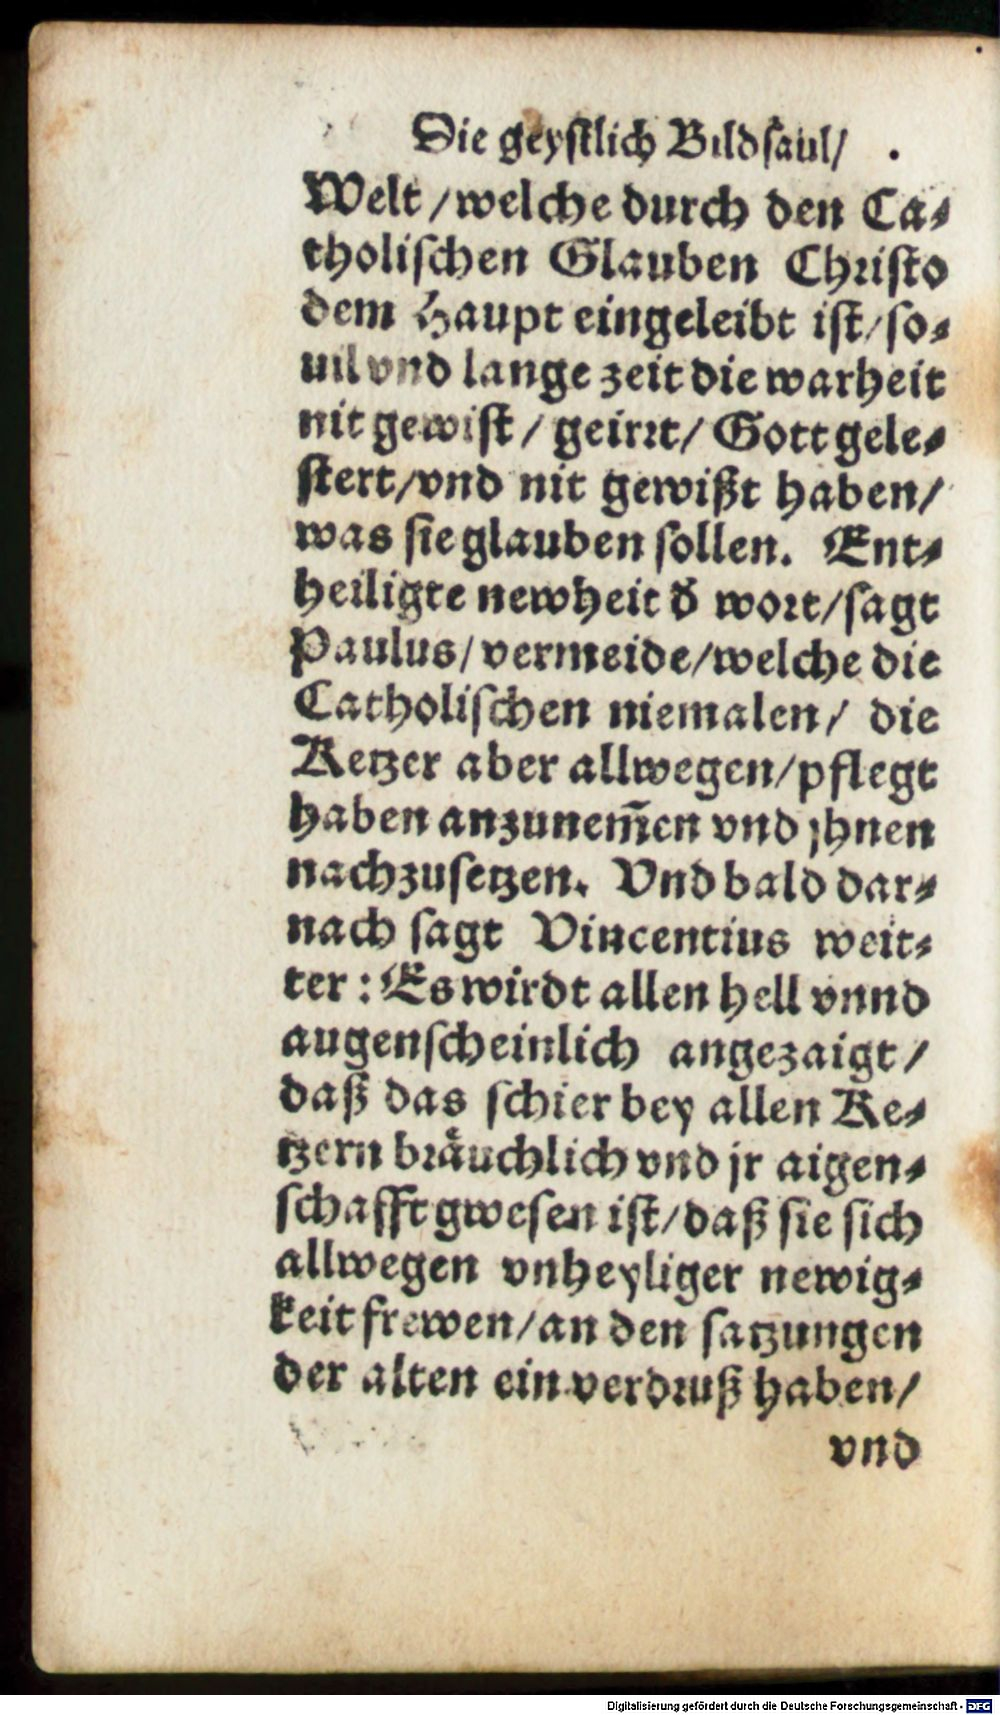 Die geystlich Bildsaul/
Welt / welche durch den Ca⸗
tholischen Glauben Christo
dem Haupt eingeleibt ist/ so⸗
uil vnd lange zeit die warheit
nit gewist / geirrt/ Gott gele⸗
stert/vnd nit gewißt haben/
was sie glauben sollen. Ent⸗
heiligte newheit d̕ wort/sagt
Paulus/ vermeide/welche die
Catholischen niemalen/ die
Ketzer aber allwegen/pflegt
haben anzunem̃en vnd jhnen
nachzusetzen. Vnd bald dar⸗
nach sagt Vincentius weit⸗
ter : Es wirdt allen hell vnnd
augenscheinlich angezaigt/
daß das schier bey allen Ke⸗
tzern braͤuchlich vnd jr aigen⸗
schafft gwesen ist/daß sie sich
allwegen vnheyliger newig⸗
keit frewen/an den satzungen
der alten ein verdruß haben/
vnd
Digitalisierung gefördert durch die Deutsche Forschungsgemeinschaft - DFG